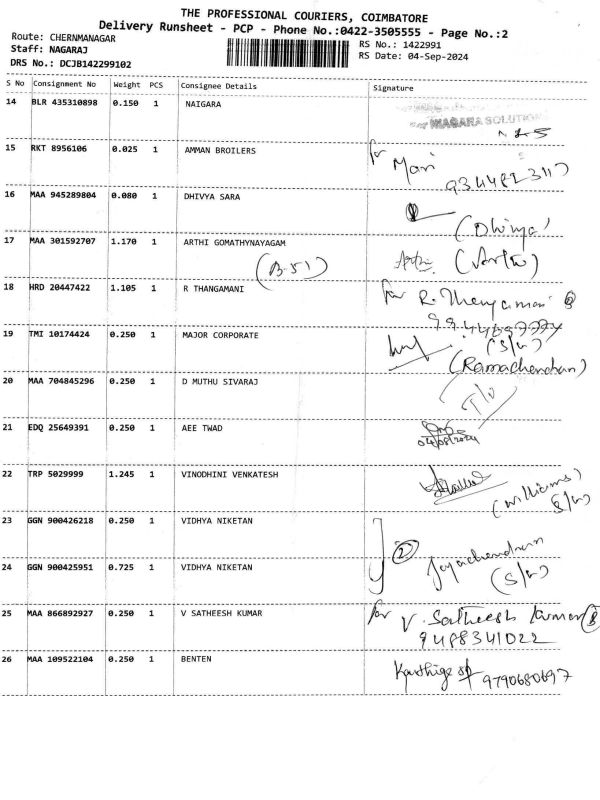 THE PROFESSIONAL COURIERS, COIMBATORE
Delivery Runsheet - PCP - Phone No.:0422-3505555 - Page No.:2
Route: CHERNMANAGAR
Staff: NAGARAJ
DRS No.: DCJB142299102
RS No.: 1422991
RS Date: 04-Sep-2024
S No Consignment No Weight PCS Consignee Details Signature
14 BLR 435310898 0.150 1 NAIGARA
For NIAGARA SOLUTION
15 RKT 8956106 0.025 1 AMMAN BROILERS
for Mari
16 MAA 945289804 0.080 1 DHIVYA SARA
(Dhivya)
17 MAA 301592707 1.170 1 ARTHI GOMATHYNAYAGAM
(B-51) (Arthi)
18 HRD 20447422 1.105 1 R THANGAMANI
for R. Thangamani
19 TMI 10174424 0.250 1 MAJOR CORPORATE
(S/G)
(Ramachandran)
20 MAA 704845296 0.250 1 D MUTHU SIVARAJ
21 EDQ 25649391 0.250 1 AEE TWAD
04/09/2024
22 TRP 5029999 1.245 1 VINODHINI VENKATESH
(Williams)
S/G
23 GGN 900426218 0.250 1 VIDHYA NIKETAN
2 Jayachandran
24 GGN 900425951 0.725 1 VIDHYA NIKETAN
(S/G)
25 MAA 866892927 0.250 1 V SATHEESH KUMAR
for V. Satheesh Kumar
9488341022
26 MAA 109522104 0.250 1 BENTEN
9790680697